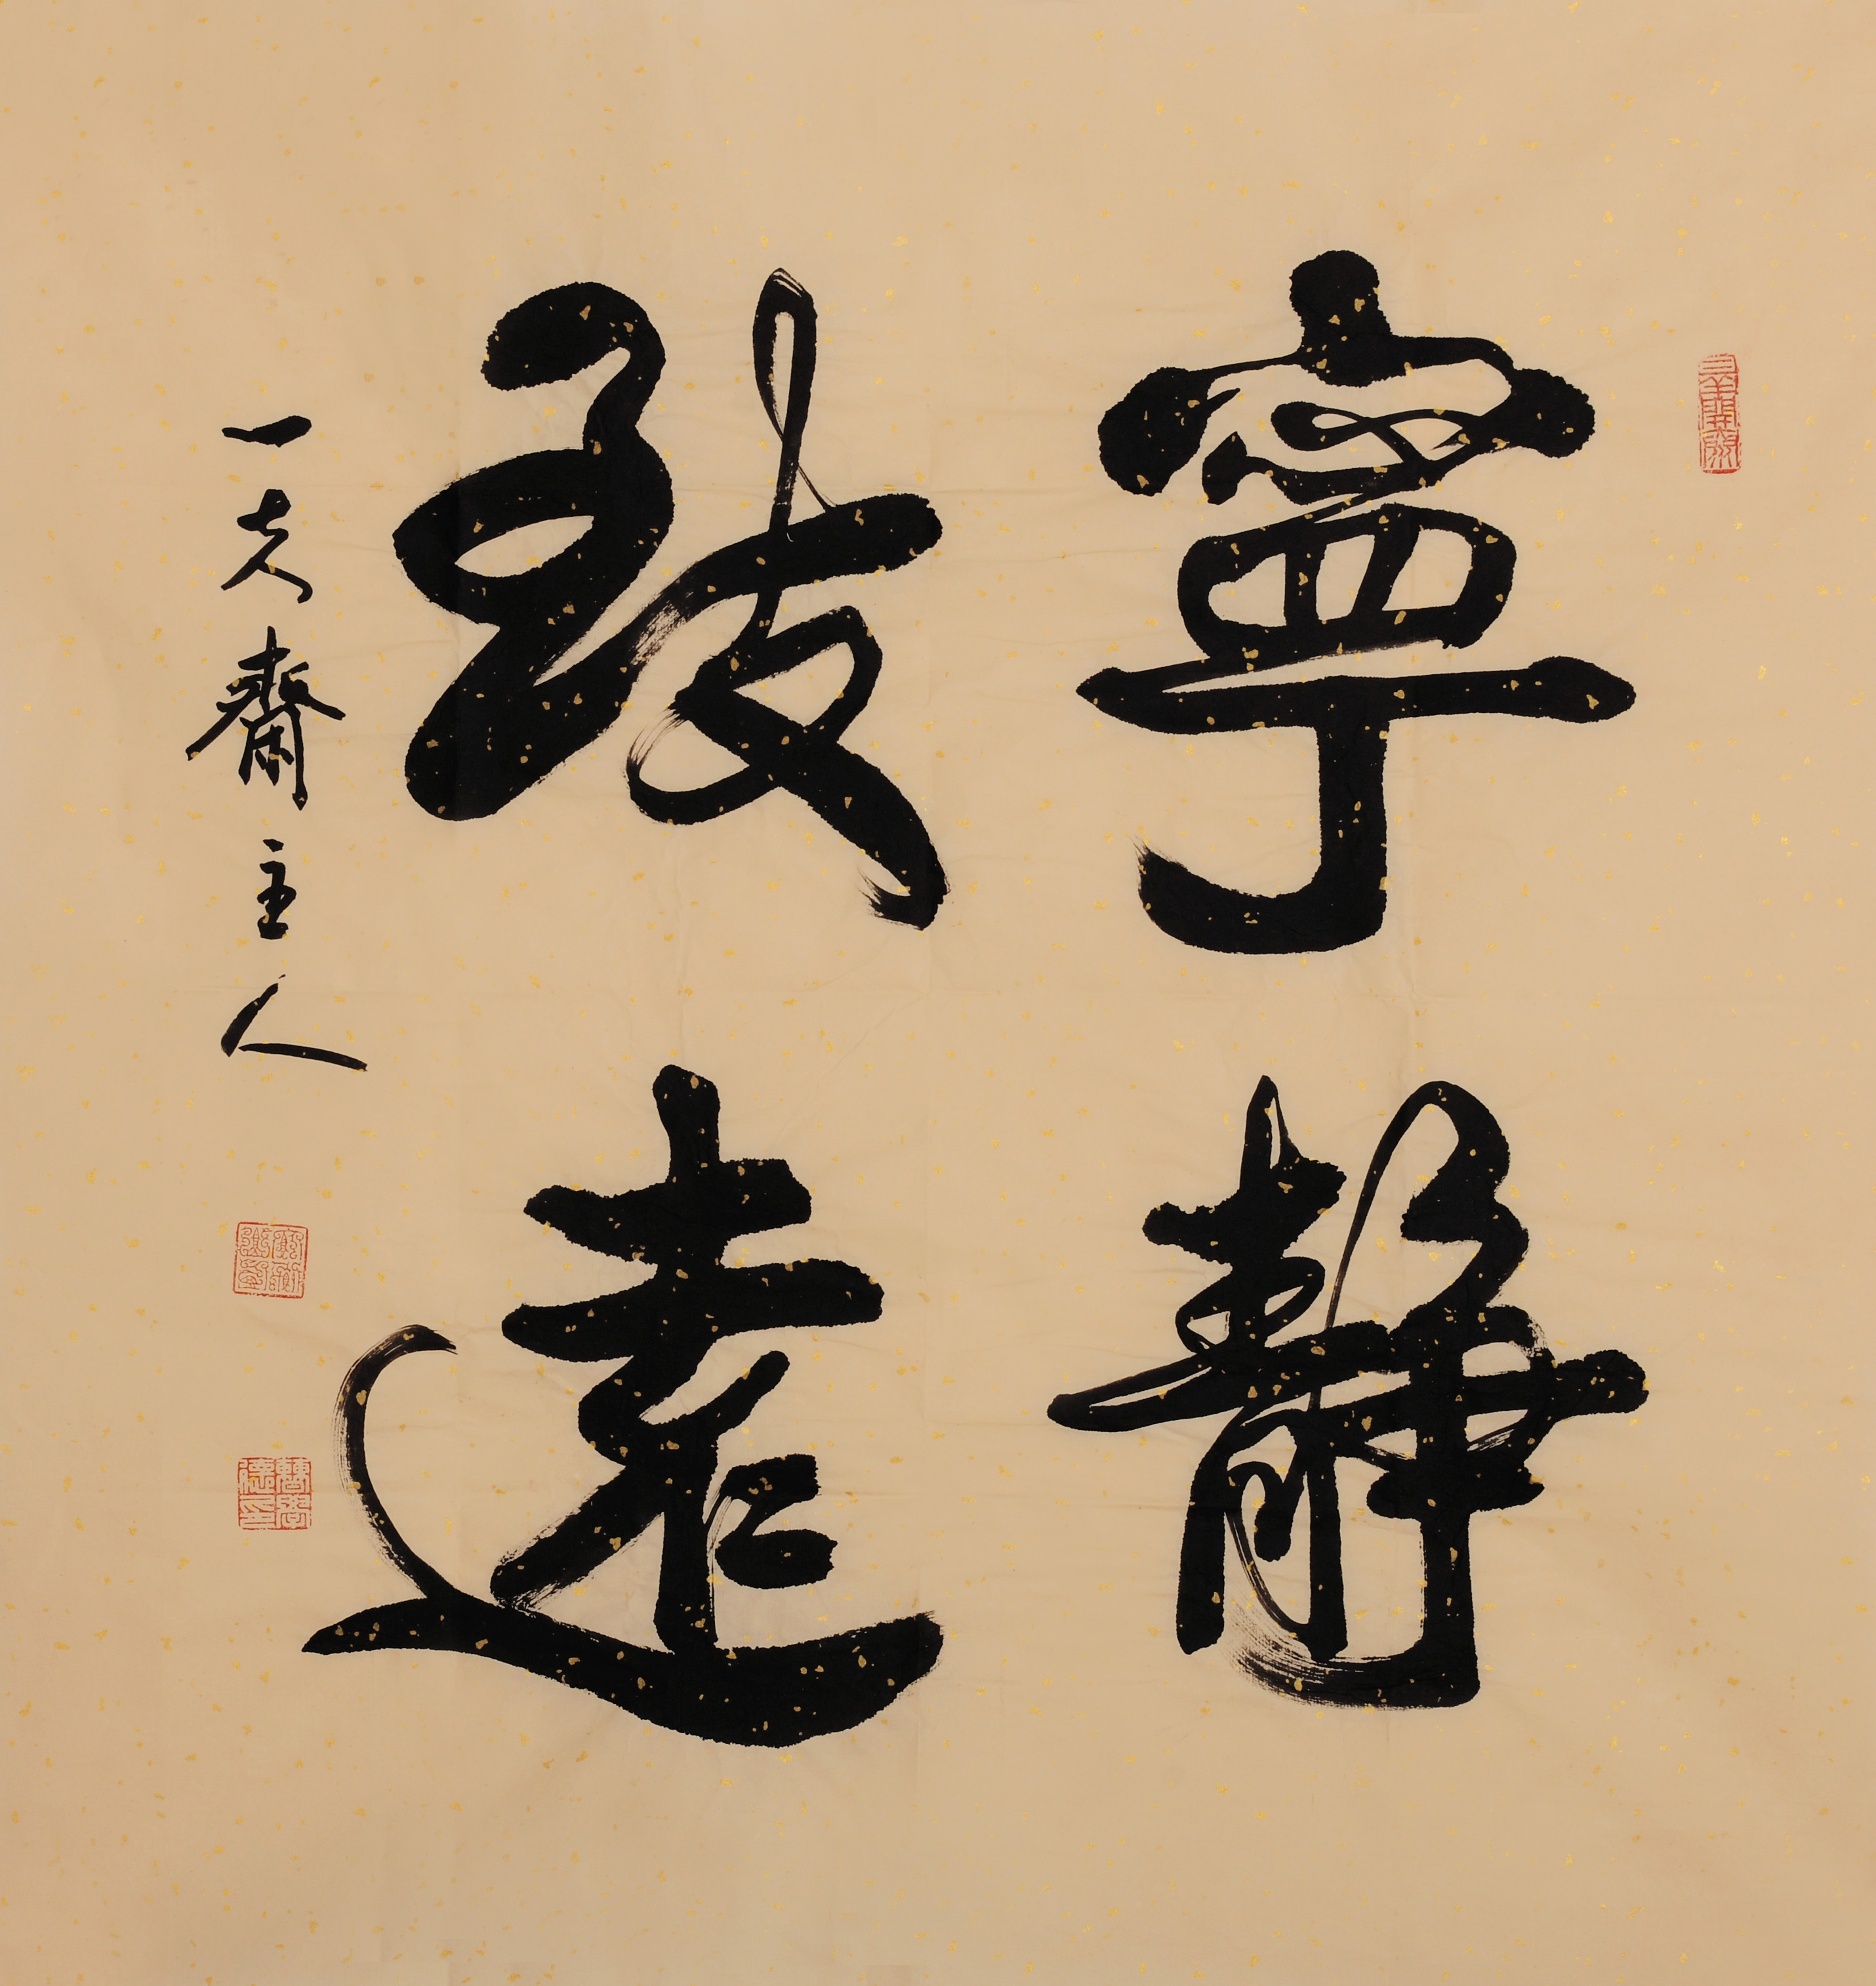 寧靜
致遠
一夫齋主人